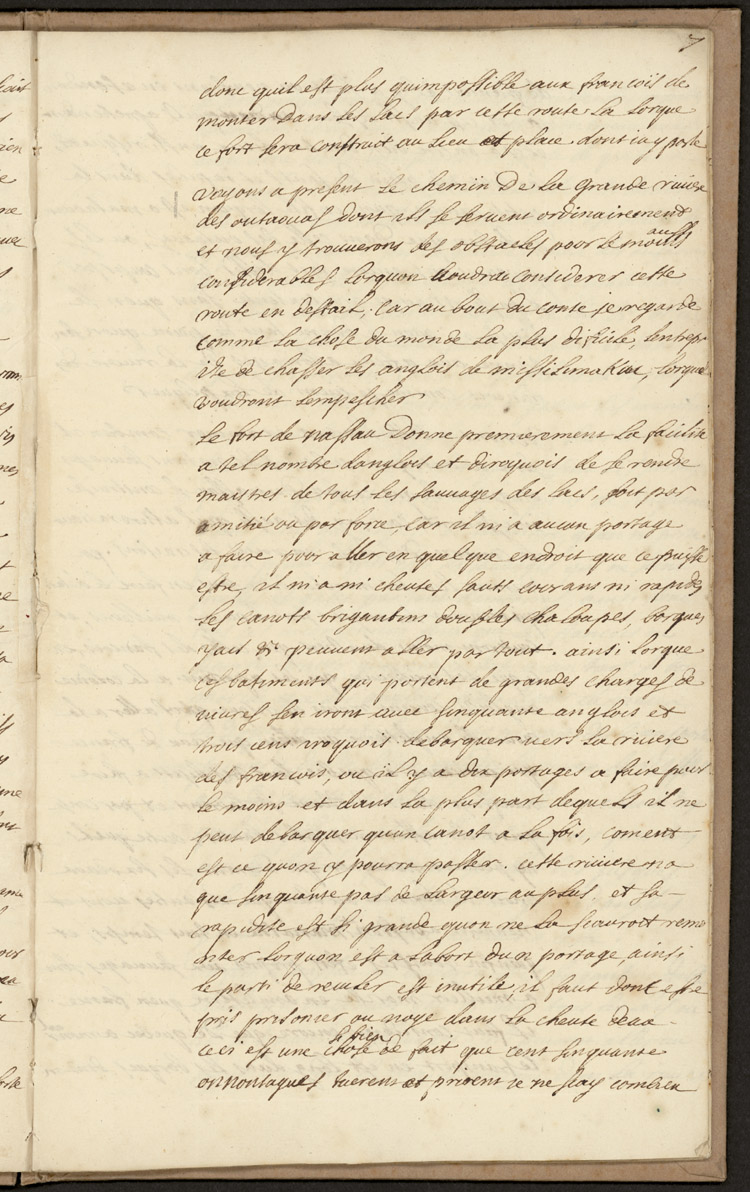 7
donc quil est plus quimpossible aux francois de
monter dans les lacs par cette route la lorque
ce fort sera construit au lieu et place dont in y parle
Voyons a present le chemin de la grande riviere
des outaouas dont ils se servent ordinairement
et nous y trouverons des obstacles pour le moins aussi
considerables lorquon voudra considerer cette
route en destail, car au bout du conte je regarde
comme la chose du monde la plus dificile, lentrep
ise de chasser les anglois de missilimakin, lorque
voudront lempescher
le fort de nassau donne premierement la facilité
a tel nombre danglois et diroquois de se rendre
maistres de tous les sauvages des lacs, soit par
amitié ou par force, car il ni a aucun portage
a faire pour aller en quelque endroit que ce puisse
estre, il ni a ni cheutes sauts courans ni rapides
les canots brigantins doubles chaloupes, barques
yacs &c peuvent aller par tout. ainsi lorque
ces batiments qui portent de grandes charges de
vivres sen iront avec sinquante anglois et
trois cens iroquois debarquer vers la riviere
des francois, ou il y a dix portages a faire pour
le moins et dans la plus part dequels il ne
peut debarquer quun canot a la fois, coment
est ce quon y pourra passer. cette riviere na
que sinquante pas de largeur au plus, et sa
rapidite est si grande quon ne la scauroit remo
nter lorquon est a labort dun portage, ainsi
le parti de reculer est inutile, il faut dont estre
pris prisonier ou noye dans la cheute deau
ceci est une chose si bien de fait que cent sinquante
onnontagues tuerent et prirent je ne scay combien